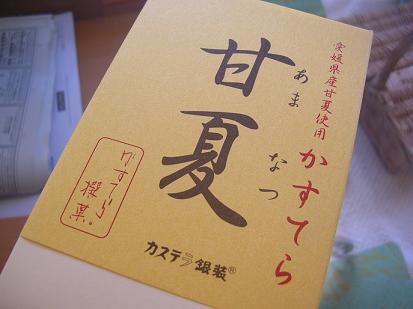 愛媛県産甘夏使用
かすてら
甘夏
あまなつ
かすてら
撰菓
カステラ銀装®